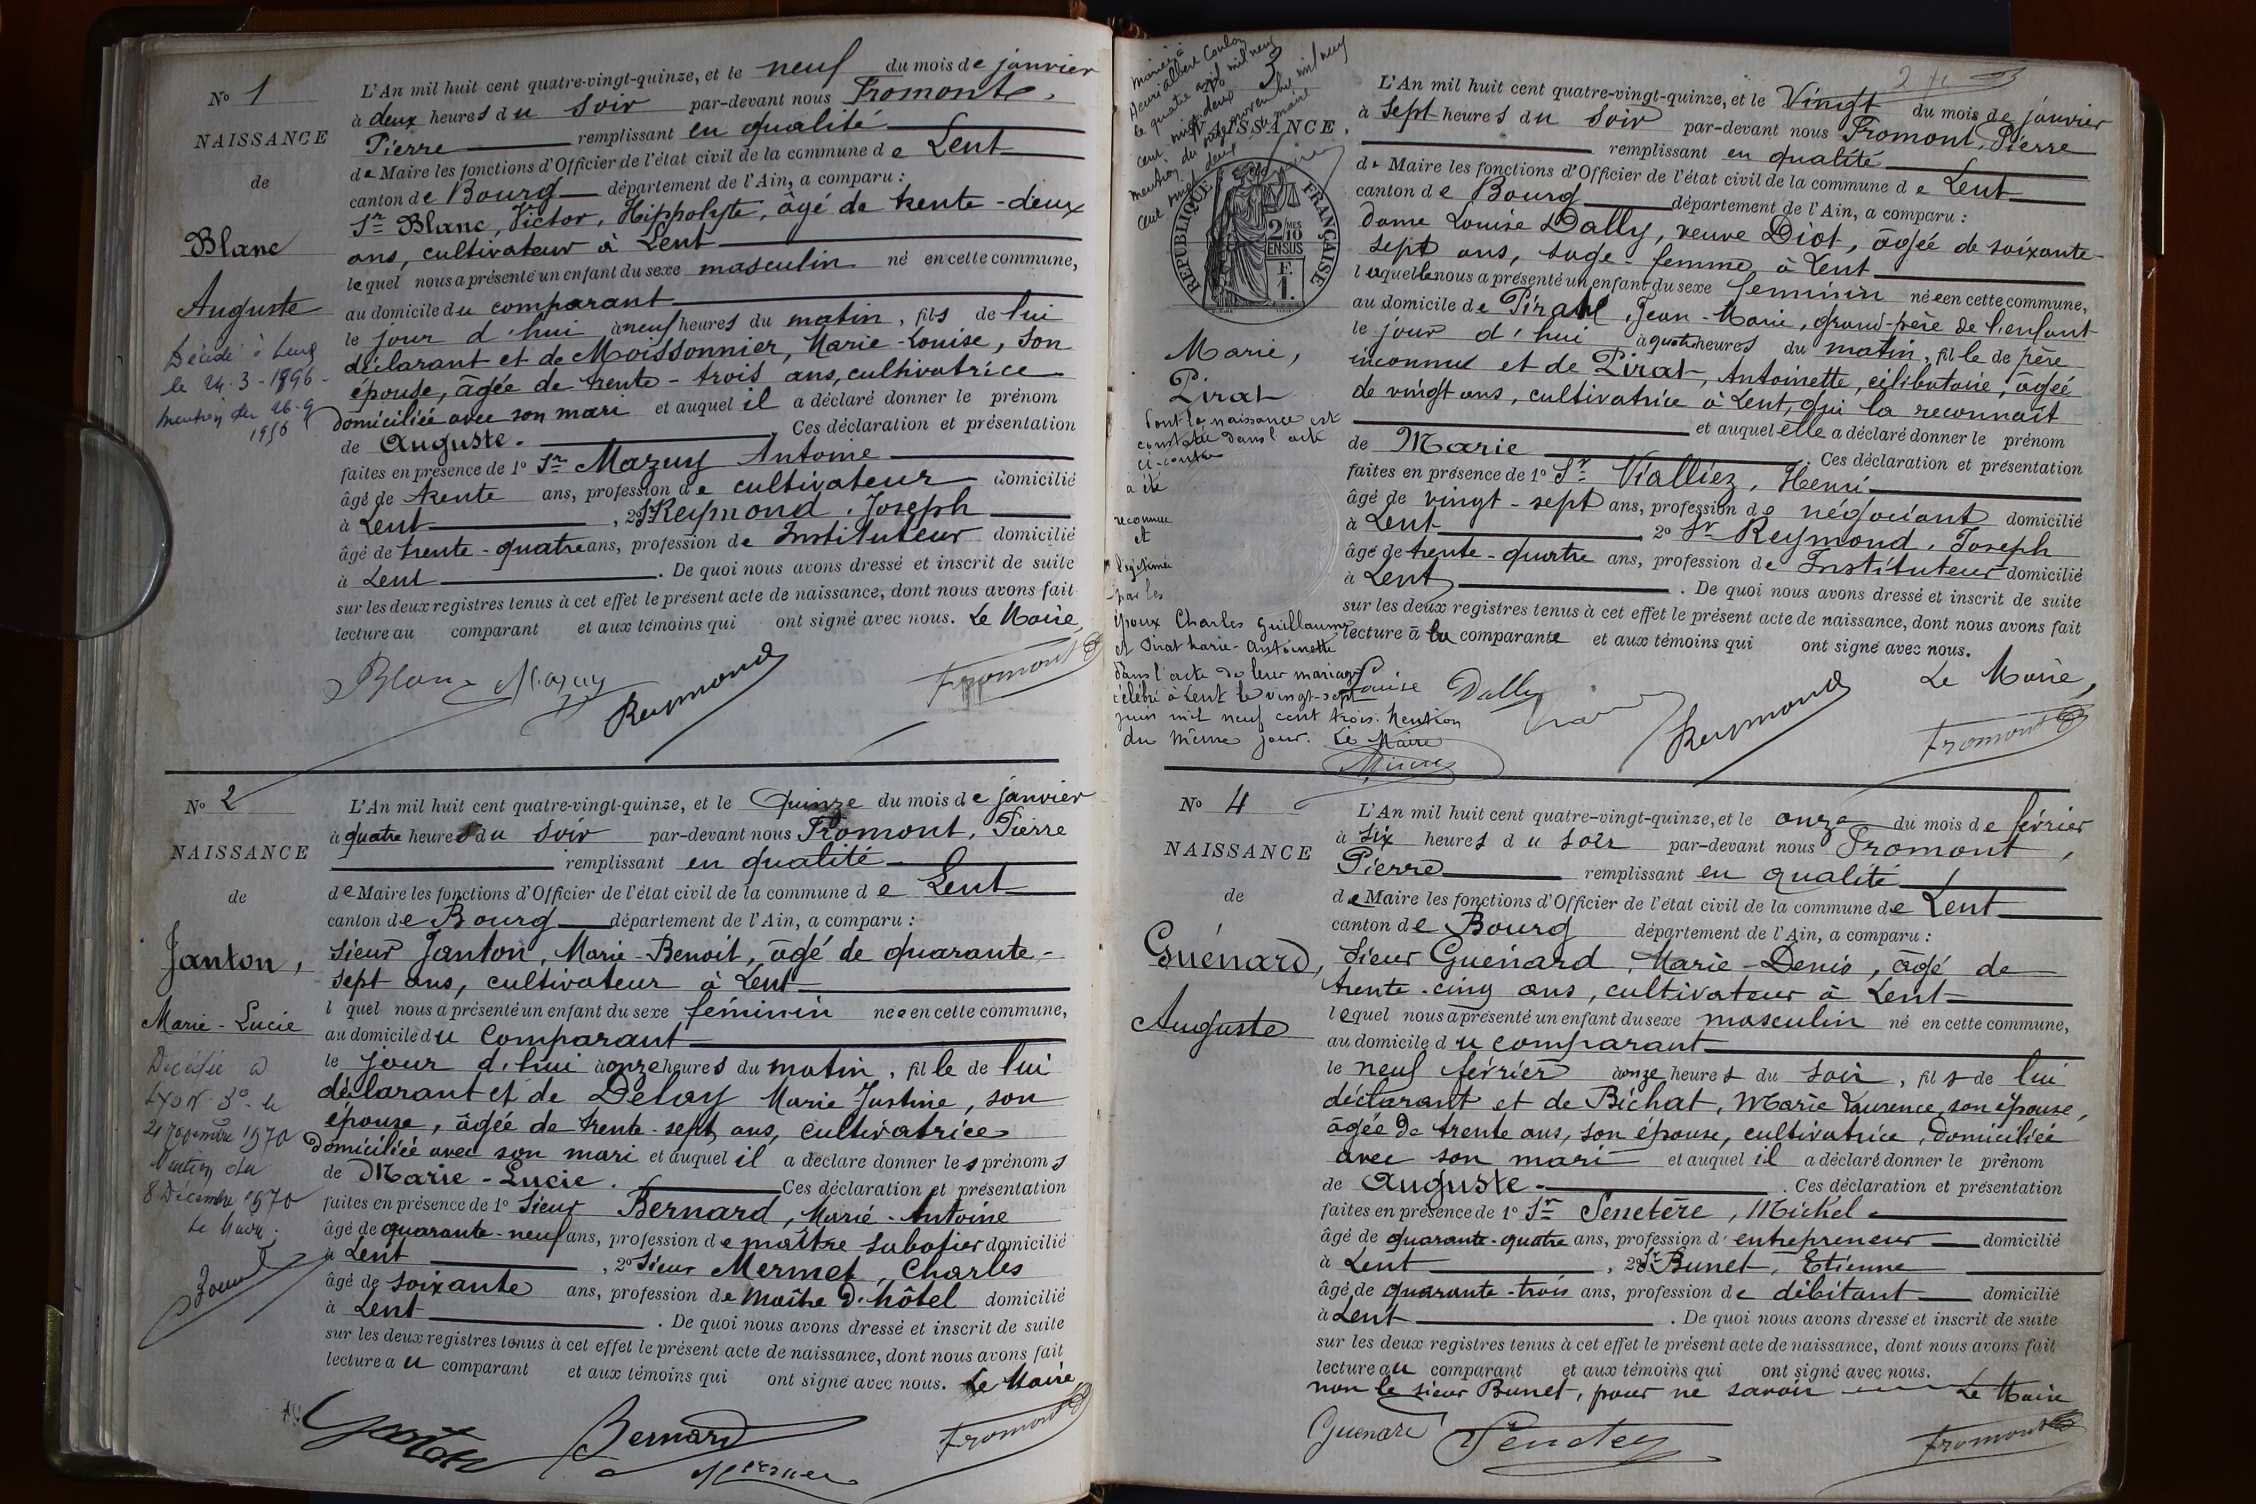 No 1
NAISSANCE
de
Blanc
Auguste
Décédé à
le 24-3-1896-
mention du 26-9
1956
L'An mil huit cent quatre-vingt-quinze, et le neuf du mois de janvier
à deux heures du soir par-devant nous Fromont,
Pierre remplissant en qualité
de Maire les fonctions d'Officier de l'état civil de la commune de Lent
canton de Bourg département de l'Ain, a comparu :
Sr Blanc, Victor, Hippolyte, âgé de trente-deux
ans, cultivateur à Lent
lequel nous a présenté un enfant du sexe masculin né en cette commune,
au domicile du comparant
le jour d'hui à neuf heures du matin, fils de lui
déclarant et de Moissonnier, Marie-Louise, son
épouse, âgée de trente-trois ans, cultivatrice
domiciliée avec son mari et auquel il a déclaré donner le prénom
de Auguste. Ces déclaration et présentation
faites en présence de 1o Sr Mazuy Antoine
âgé de trente ans, profession de cultivateur domicilié
à Lent, 2o Sr Reymond, Joseph
âgé de trente-quatre ans, profession de Instituteur domicilié
à Lent. De quoi nous avons dressé et inscrit de suite
sur les deux registres tenus à cet effet le présent acte de naissance, dont nous avons fait
lecture au comparant et aux témoins qui ont signé avec nous. Le Maire,
Blanc Mazuy Reymond Fromont
No 2
NAISSANCE
de
Janton,
Marie-Lucie
Décédée à
LYON 3e le
21 novembre 1970
Mention du
8 Décembre 1970
Le Maire.
L'An mil huit cent quatre-vingt-quinze, et le Quinze du mois de janvier
à quatre heures du soir par-devant nous Fromont, Pierre
remplissant en qualité
de Maire les fonctions d'Officier de l'état civil de la commune de Lent
canton de Bourg département de l'Ain, a comparu :
Sieur Janton, Marie-Benoit, âgé de quarante-
sept ans, cultivateur à Lent
l quel nous a présenté un enfant du sexe féminin née en cette commune,
au domicile du comparant
le jour d'hui à onze heures du matin, fille de lui
déclarant et de Delay Marie Justine, son
épouse, âgée de trente-sept ans, cultivatrice
domiciliée avec son mari et auquel il a déclaré donner les prénoms
de Marie-Lucie. Ces déclaration et présentation
faites en présence de 1o Sieur Bernard, Marie-Antoine
âgé de quarante-neuf ans, profession de maître sabotier domicilié
à Lent, 2o Sieur Mermet, Charles
âgé de soixante ans, profession de Maître d'hôtel domicilié
à Lent. De quoi nous avons dressé et inscrit de suite
sur les deux registres tenus à cet effet le présent acte de naissance, dont nous avons fait
lecture au comparant et aux témoins qui ont signé avec nous. Le Maire
Janton Bernard Fromont
Mermet
Mariée à
Henri Albert Coulon
le quatre avril mil neuf
cent vingt deux
mention du
cent vingt deux Le maire
No 3
NAISSANCE
RÉPUBLIQUE FRANÇAISE
2 MES
10
EN SUS
Marie,
Pirat
dont la naissance est
constatée dans l'acte
ci-contre
a été
reconnue
et
légitimée
par les
époux Charles Guillaume
et Pirat Marie-Antoinette
dans l'acte de leur mariage
célébré à Lent le vingt-sept
juin mil neuf cent trois. Mention
du même jour. Le Maire
L'An mil huit cent quatre-vingt-quinze, et le Vingt du mois de janvier
à sept heures du soir par-devant nous Fromont, Pierre
remplissant en qualité
de Maire les fonctions d'Officier de l'état civil de la commune de Lent
canton de Bourg département de l'Ain, a comparu :
dame Louise Dally, veuve Diot, âgée de soixante-
sept ans, sage-femme à Lent
laquelle nous a présenté un enfant du sexe féminin née en cette commune,
au domicile de Pirat, Jean-Marie, grand-père de l'enfant
le jour d'hui à quatre heures du matin, fille de père
inconnu et de Pirat, Antoinette, célibataire, âgée
de vingt ans, cultivatrice à Lent, qui la reconnaît
et auquel elle a déclaré donner le prénom
de Marie. Ces déclaration et présentation
faites en présence de 1o Sr Vialliez, Henri
âgé de vingt-sept ans, profession de négociant domicilié
à Lent 2o Sr Reymond, Joseph
âgé de trente-quatre ans, profession de Instituteur domicilié
à Lent. De quoi nous avons dressé et inscrit de suite
sur les deux registres tenus à cet effet le présent acte de naissance, dont nous avons fait
lecture à la comparante et aux témoins qui ont signé avec nous.
Le Maire,
Louise Dally Reymond Fromont
No 4
NAISSANCE
de
Guénard,
Auguste
L'An mil huit cent quatre-vingt-quinze, et le onze du mois de février
à six heures du soir par-devant nous Fromont,
Pierre remplissant en qualité
de Maire les fonctions d'Officier de l'état civil de la commune de Lent
canton de Bourg département de l'Ain, a comparu :
Sieur Guénard, Marie-Denis, âgé de
trente-cinq ans, cultivateur à Lent
lequel nous a présenté un enfant du sexe masculin né en cette commune,
au domicile du comparant
le neuf février à onze heures du soir, fils de lui
déclarant et de Bichat, Marie Laurence, son épouse,
âgée de trente ans, son épouse, cultivatrice, domiciliée
avec son mari et auquel il a déclaré donner le prénom
de Auguste. Ces déclaration et présentation
faites en présence de 1o Sr Senetère, Michel
âgé de quarante-quatre ans, profession d'entrepreneur domicilié
à Lent, 2o Sr Bunet, Etienne
âgé de quarante-trois ans, profession de débitant domicilié
à Lent. De quoi nous avons dressé et inscrit de suite
sur les deux registres tenus à cet effet le présent acte de naissance, dont nous avons fait
lecture au comparant et aux témoins qui ont signé avec nous.
non le sieur Bunet, pour ne savoir Le Maire
Guénard Fromont